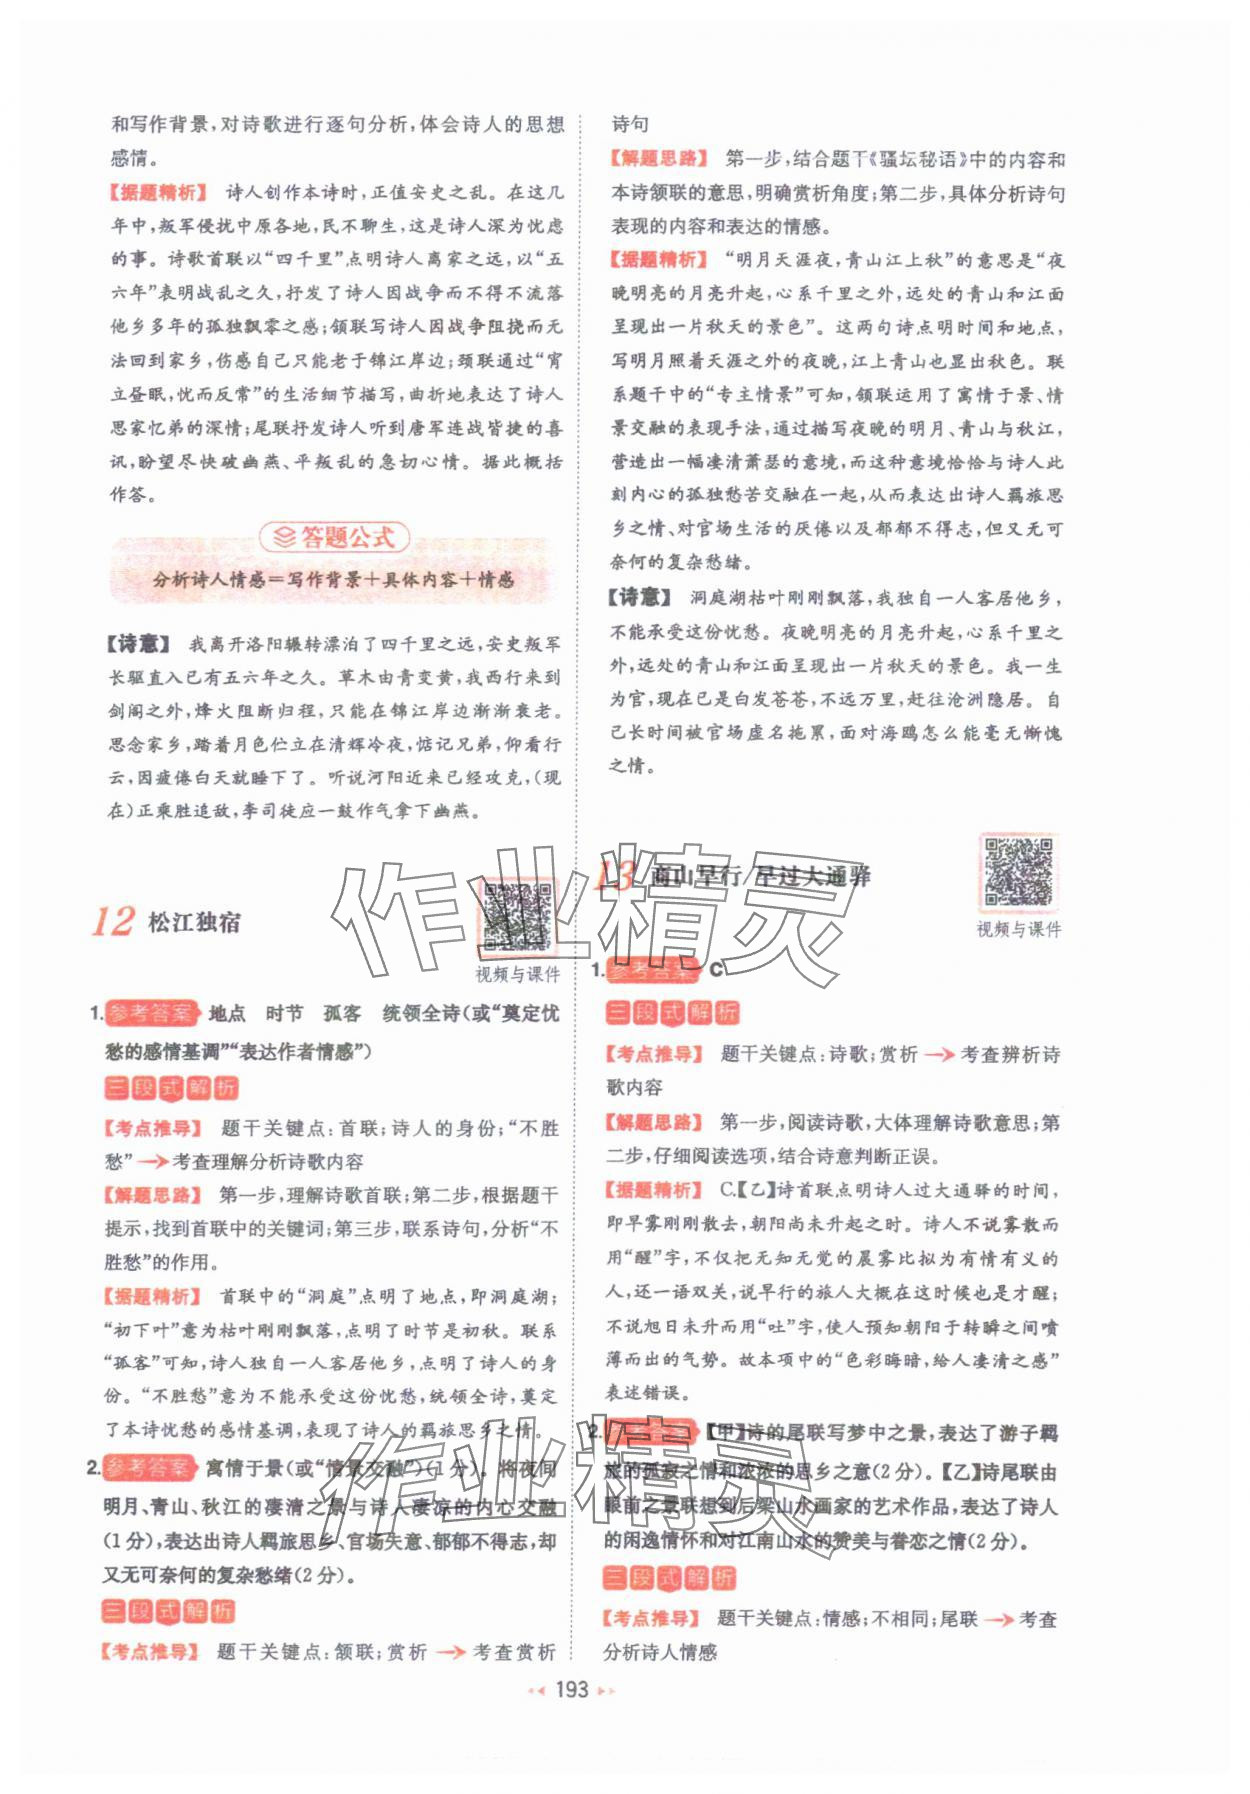 和写作背景,对诗歌进行逐句分析,体会诗人的思想
感情。
【据题精析】 诗人创作本诗时,正值安史之乱。在这几
年中,叛军侵扰中原各地,民不聊生,诗人深为忧虑
的事。诗歌首联以“四千里”点明诗人离家之远,以“五
六年”表明战乱之久,抒发了诗人因战争而不得不流落
他乡多年的孤独飘零之感;颔联写诗人因战争阻挠而无
法回到家乡,伤感自己只能老于锦江岸边;颈联通过“宵
立昼眠,忧而反常”的生活细节描写,曲折地表达了诗人
思家忆弟的深情;尾联抒发诗人听到唐军连战皆捷的喜
讯,盼望尽快破幽燕、平叛乱的急切心情。据此概括
作答。
答题公式
分析诗人情感=写作背景+具体内容+情感
【诗意】 我离开洛阳辗转漂泊了四千里之远,安史叛军
长驱直入已有五六年之久。草木由青变黄,我西行来到
剑阁之外,烽火阻断归程,只能在锦江岸边渐渐衰老。
思念家乡,踏着月色伫立在清辉冷夜,惦记兄弟,仰看行
云,因疲倦白天就睡下了。听说河阳近来已经攻克,(现
在)正乘胜追敌,李司徒应一鼓作气拿下幽燕。
12 松江独宿
视频与课件
1. 参考答案 地点 时节 孤客 统领全诗(或“奠定忧
愁的感情基调”“表达作者情感”)
三段式解析
【考点推导】 题干关键点:首联;诗人的身份;“不胜
愁”→考查理解分析诗歌内容
【解题思路】 第一步,理解诗歌首联;第二步,根据题干
提示,找到首联中的关键词;第三步,联系诗句,分析“不
胜愁”的作用。
【据题精析】 首联中的“洞庭”点明了地点,即洞庭湖;
“初下叶”意为枯叶刚刚飘落,点明了时节是初秋。联系
“孤客”可知,诗人独自一人客居他乡,点明了诗人的身
份。“不胜愁”意为不能承受这份忧愁,统领全诗,奠定
了本诗忧愁的感情基调,表现了诗人的羁旅思乡之情。
2. 参考答案 寓情于景(或“情景交融”)(1分)。将夜间
明月、青山、秋江的凄清之景与诗人凄凉的内心交融
(1分),表达出诗人羁旅思乡、官场失意、郁郁不得志,却
又无可奈何的复杂愁绪(2分)。
三段式解析
【考点推导】 题干关键点:颔联;赏析→考查赏析
诗句
【解题思路】 第一步,结合题干《骚坛秘语》中的内容和
本诗颔联的意思,明确赏析角度;第二步,具体分析诗句
表现的内容和表达的情感。
【据题精析】 “明月天涯夜,青山江上秋”的意思是“夜
晚明亮的月亮升起,心系千里之外,远处的青山和江面
呈现出一片秋天的景色”。这两句诗点明时间和地点,
写明月照着天涯之外的夜晚,江上青山也显出秋色。联
系题干中的“专主情景”可知,颔联运用了寓情于景、情
景交融的表现手法,通过描写夜晚的明月、青山与秋江,
营造出一幅凄清萧瑟的意境,而这种意境恰恰与诗人此
刻内心的孤独愁苦交融在一起,从而表达出诗人羁旅思
乡之情、对官场生活的厌倦以及郁郁不得志,但又无可
奈何的复杂愁绪。
【诗意】 洞庭湖枯叶刚刚飘落,我独自一人客居他乡,
不能承受这份忧愁。夜晚明亮的月亮升起,心系千里之
外,远处的青山和江面呈现出一片秋天的景色。我一生
为官,现在已是白发苍苍,不远万里,赶往沧洲隐居。自
己长时间被官场虚名拖累,面对海鸥怎么能毫无惭愧
之情。
13 商山早行/早过大通驿
视频与课件
1. 参考答案 C
三段式解析
【考点推导】 题干关键点:诗歌;赏析→考查辨析诗
歌内容
【解题思路】 第一步,阅读诗歌,大体理解诗歌意思;第
二步,仔细阅读选项,结合诗意判断正误。
【据题精析】 C.【乙】诗首联点明诗人过大通驿的时间,
即早雾刚刚散去,朝阳尚未升起之时。诗人不说雾散而
用“醒”字,不仅把无知无觉的晨雾比拟为有情有义的
人,还一语双关,说早行的旅人大概在这时候也是才醒;
不说旭日未升而用“吐”字,使人预知朝阳于转瞬之间喷
薄而出的气势。故本项中的“色彩晦暗,给人凄清之感”
表述错误。
2. 参考答案 【甲】诗的尾联写梦中之景,表达了游子羁
旅的孤寂之情和浓浓的思乡之意(2分)。【乙】诗尾联由
眼前之景联想到后梁山水画家的艺术作品,表达了诗人
的闲逸情怀和对江南山水的赞美与眷恋之情(2分)。
三段式解析
【考点推导】 题干关键点:情感;不相同;尾联→考查
分析诗人情感
193
作业精灵
作业精灵